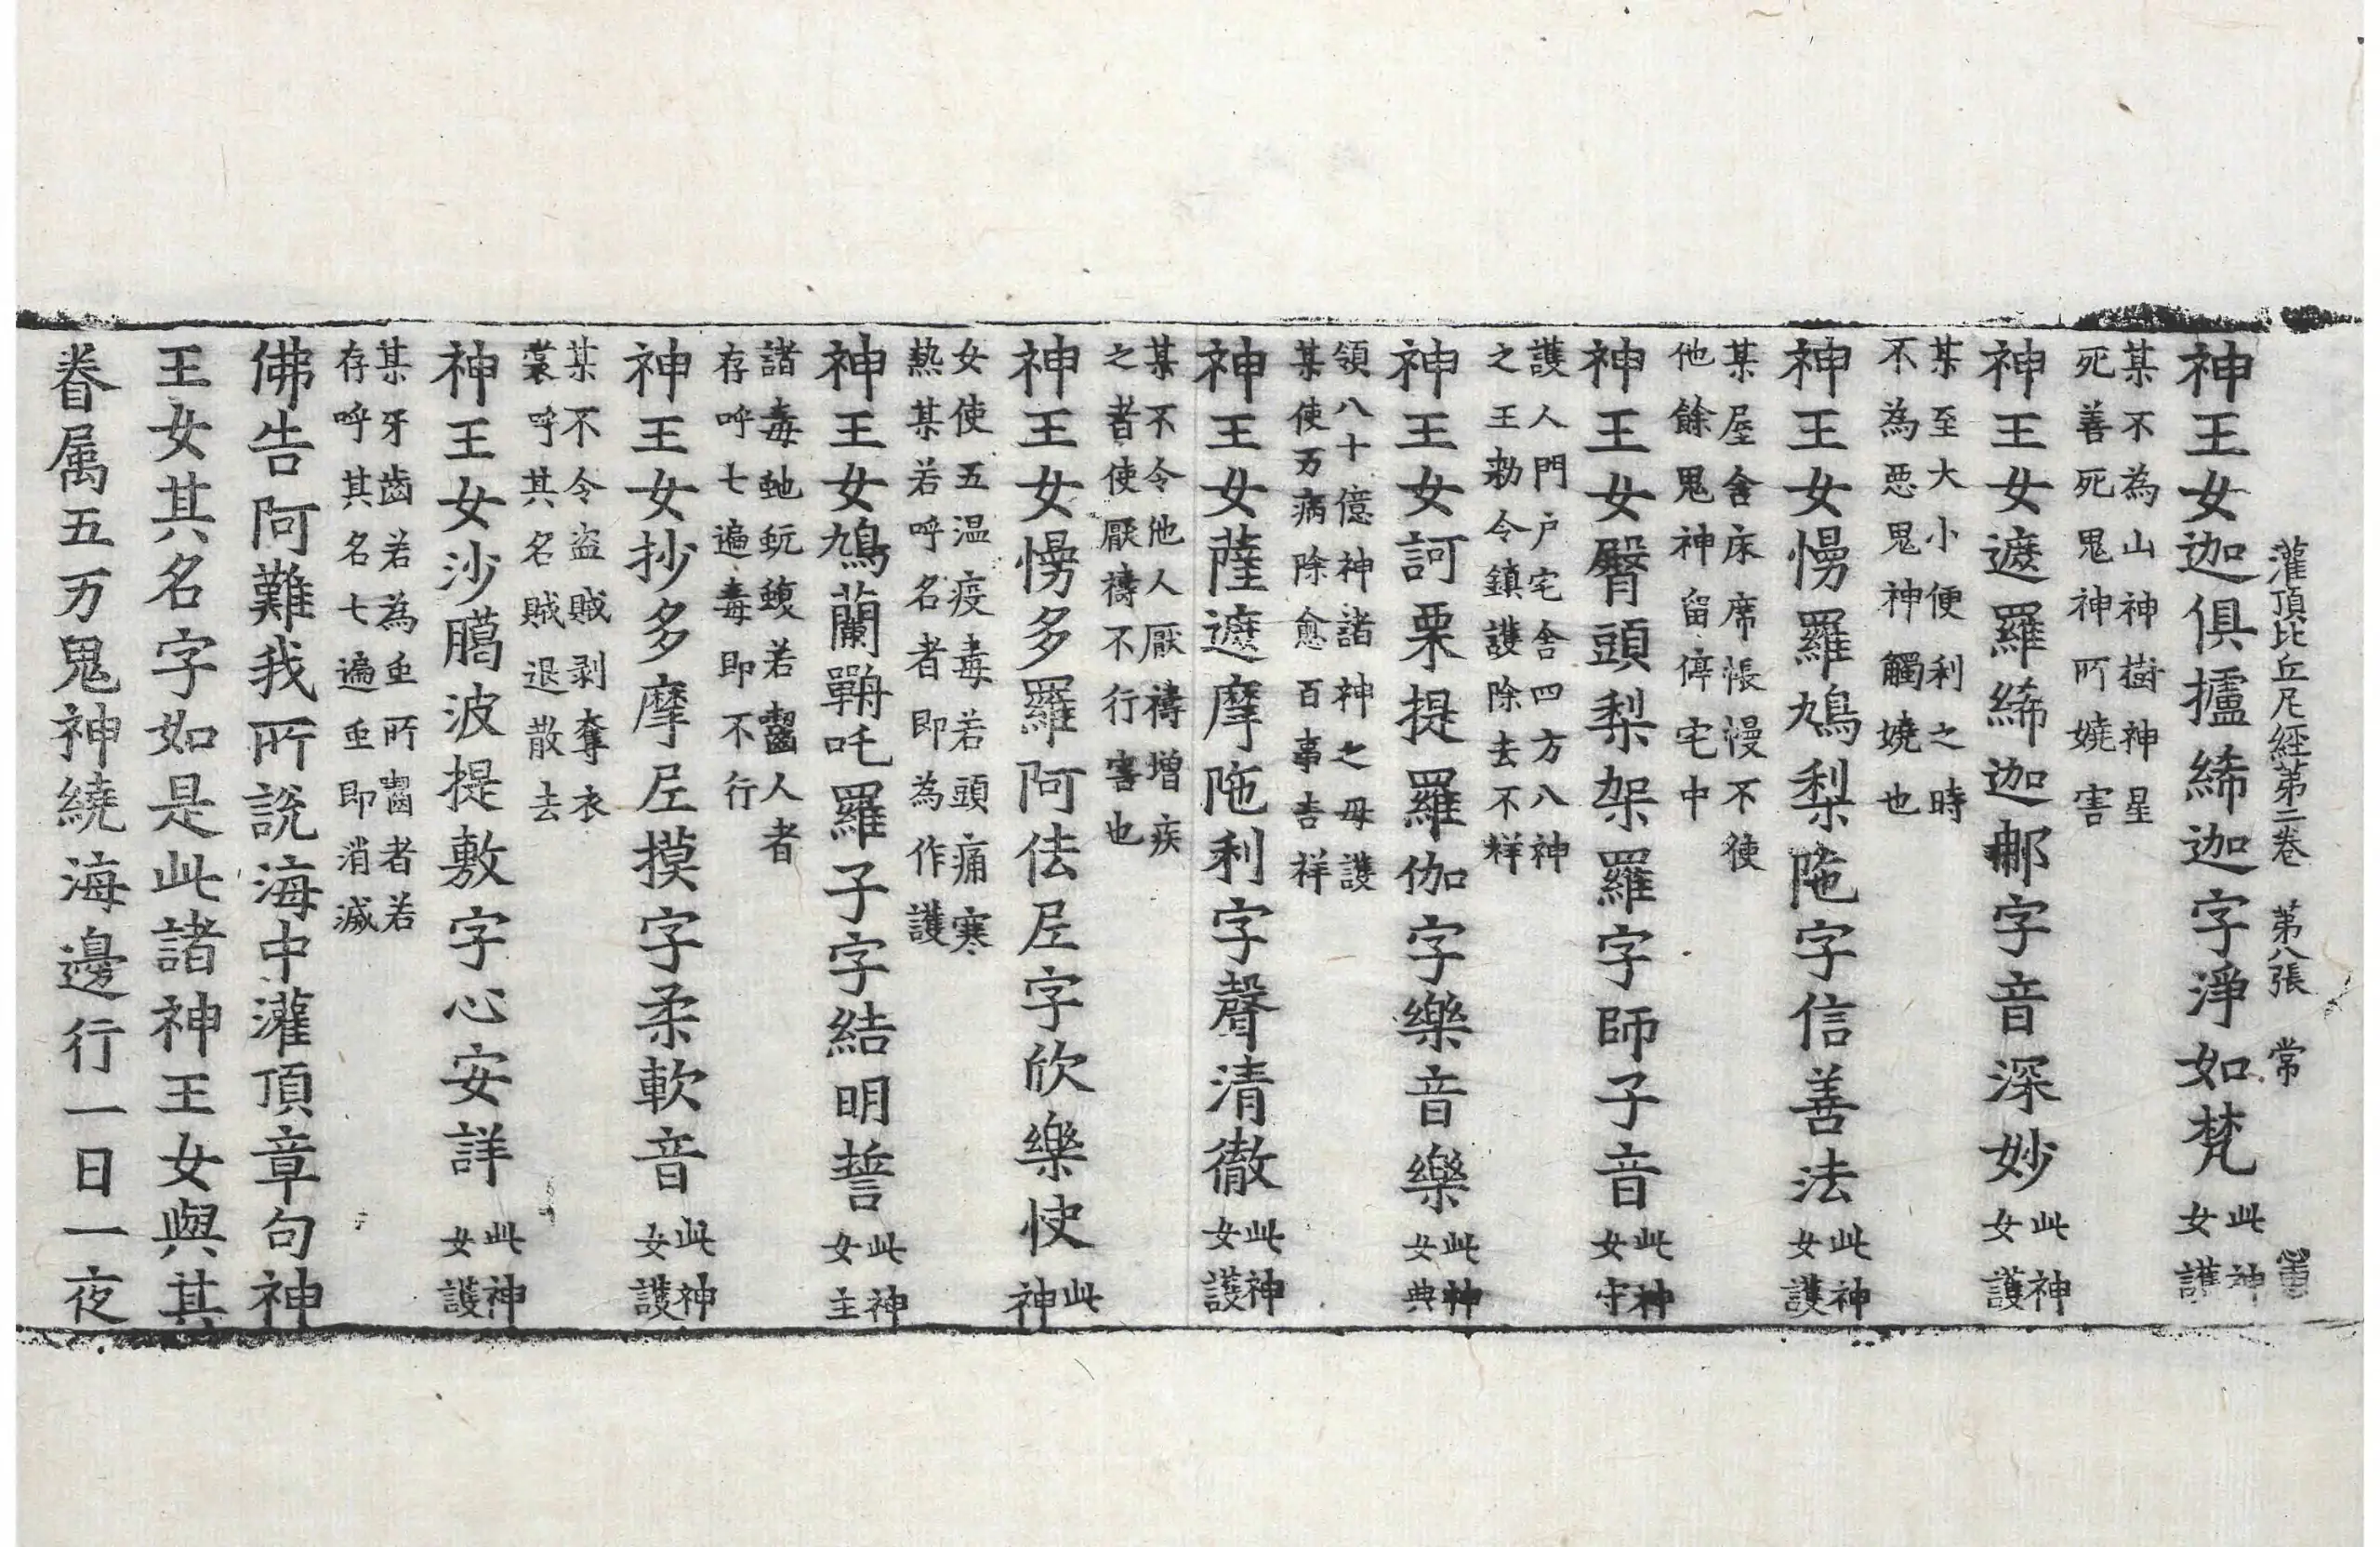 灌頂比丘尼經第二卷 第八張 常
神王女迦俱攎絺迦字淨如梵 此神女護
某不為山神樹神星
死善死鬼神所嬈害
神王女遮羅絺迦㖠字音深妙 此神女護
某至大小便利之時
不為惡鬼神觸嬈也
神王女愓羅鳩梨陁字信善法 此神女護
某屋舍床席帳慢不使
他餘鬼神留停宅中
神王女臀頭梨架羅字師子音 此神女守
護人門户宅舍四方八神
之王勑令鎮護除去不祥
神王女訶栗提羅伽字樂音樂 此神女典
領八十億神諸神之母護
某使万病除愈百事吉祥
神王女薩遮摩陁利字聲清徹 此神女護
某不令他人厭禱增疾
之者使厭禱不行害也
神王女愓多羅阿佉𡰱字欣樂快 此神
女使五温疫毒若頭痛寒
熱某若呼名者即為作護
神王女鳩蘭鸋吒羅子字結明誓 此神女主
諸毒虵蚖蝮若齧人者
存呼七遍毒即不行
神王女抄多摩𡰱摸字柔軟音 此神女護
某不令盗賊剥奪衣
裳呼其名賊退散去
神王女沙臈波提敷字心安詳 此神女護
某牙齒若為虫所齧者若
存呼其名七遍虫即消滅
佛告阿難我所說海中灌頂章句神
王女其名字如是此諸神王女與其
眷属五万鬼神繞海邊行一日一夜